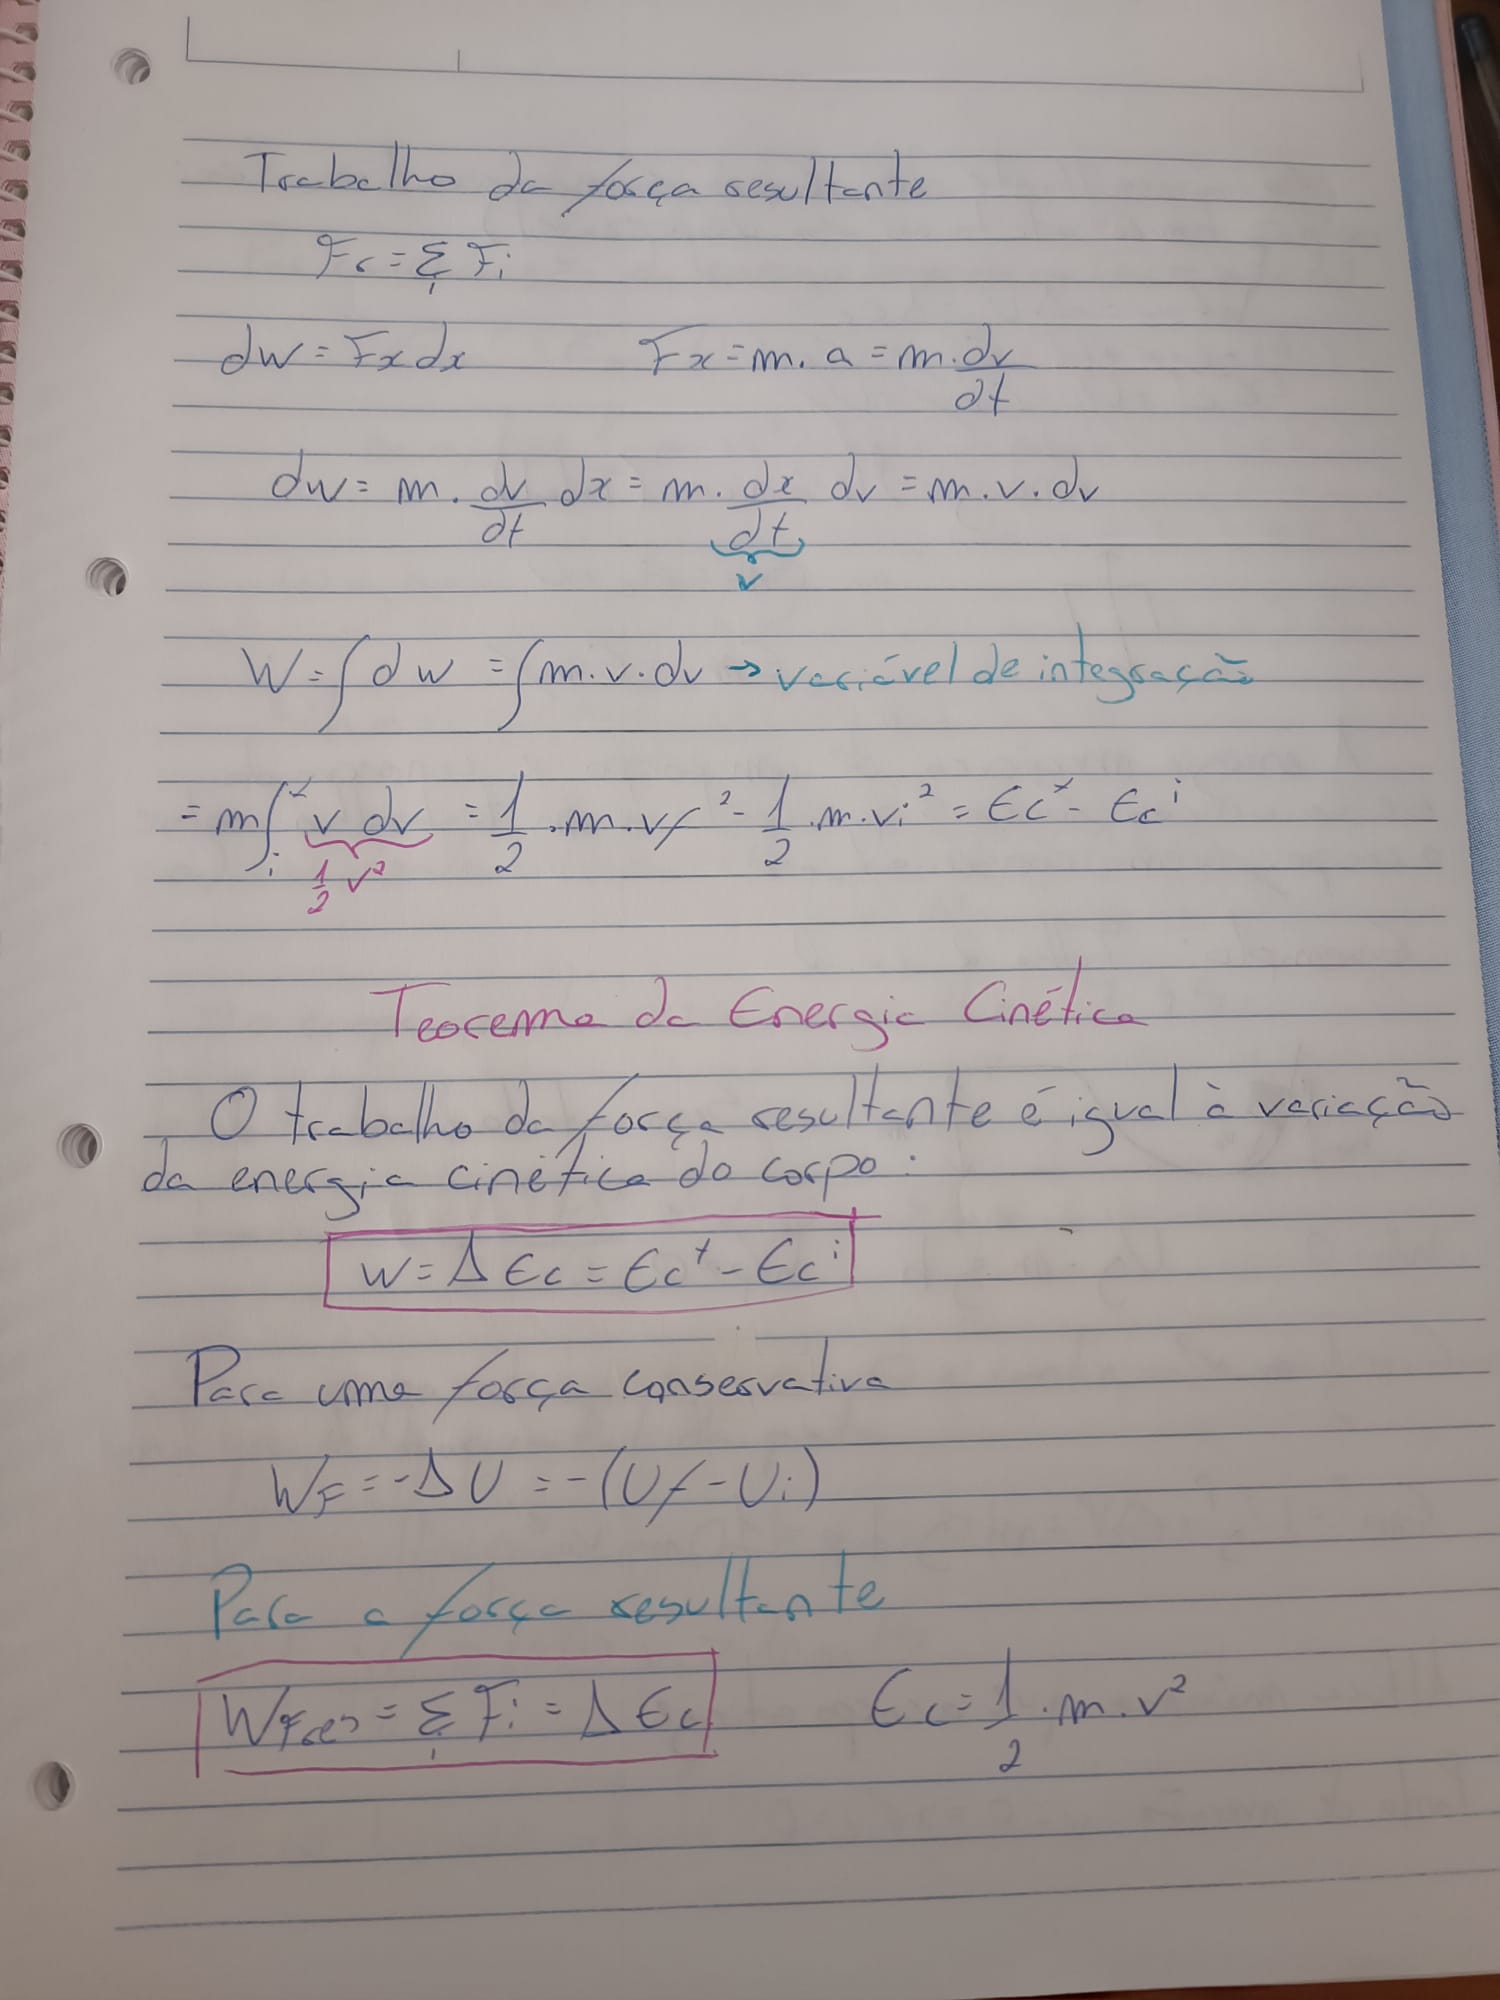 Trabalho da força resultante
Fr = Σi Fi
dw = Fx dx    Fx = m . a = m . dv/dt
dw = m . dv/dt dx = m . dx/dt dv = m . v . dv
v
W = ∫ dw = ∫ m . v . dv → variável de integração
= m ∫i^f v dv = 1/2 . m . vf² - 1/2 . m . vi² = Ec^f - Ec^i
1/2 v²
Teorema da Energia Cinética
O trabalho da força resultante é igual à variação
da energia cinética do corpo :
W = Δ Ec = Ec^f - Ec^i
Para uma força conservativa
WF = -ΔU = -(Uf - Ui)
Para a força resultante
WFres = Σi Fi = Δ Ec    Ec = 1/2 . m . v²